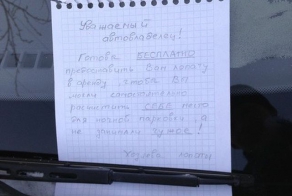 Уважаемый
автовладелец!
Готова БЕСПЛАТНО
предоставить Вам лопату
в аренду, чтобы Вы
могли самостоятельно
расчистить СЕБЕ место
для парковки, а
не занимали чужое!